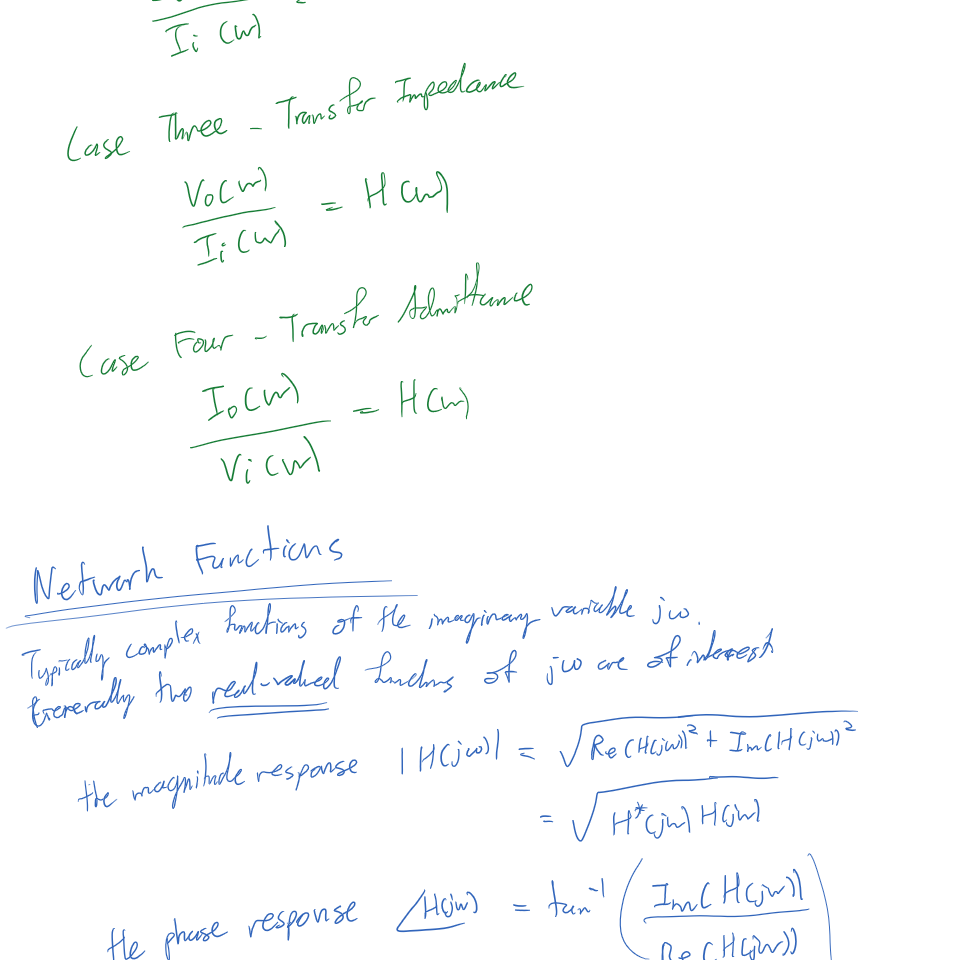 I_i (w)
Case Three - Transfer Impedance
V_o(w) / I_i(w) = H(w)
Case Four - Transfer Admittance
I_o(w) / V_i(w) = H(w)
Network Functions
Typically complex functions of the imaginary variable jω.
Generally two real-valued functions of jω are of interest
the magnitude response |H(jω)| = √(Re(H(jω))² + Im(H(jω))²)
= √(H*(jω) H(jω))
the phase response ∠H(jω) = tan⁻¹(Im(H(jω)) / Re(H(jω)))